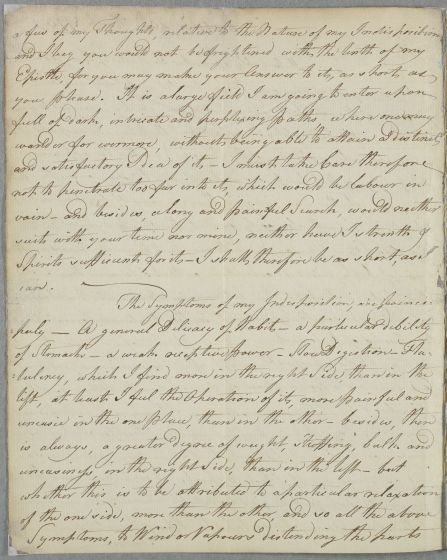 a few of my Thoughts, relative to the Nature of my Indisposition
and I beg you would not be frightened with the lenth of my
Epistle, for you may make your Answer to it, as short, as
you please. It is a large field I am going to enter upon
full of dark, intricate and perplexing paths, where one may
wander for evermore, without being able to attain a distinct
and satisfactory Idea of it – I must take Care therefore
not to penetrate too far into it, which would be labour in
vain – and besides, a long and painful Search, would neither
suit with your time nor mine, neither have I strenth of
Spirits sufficient for it – I shall therefore be as short, as I
can.
The Symptoms of my Indisposition, are princi=
=pally – A general Delicacy of Habit – a particular debility
of Stomach – a weak receptive power – Slow Digestion – Fla=
=tulency, which I find more in the right Side than in the
left, at least I feel the Operation of it, more painful and
uneasie in the one place, than in the other – besides, there
is always, a greater degree of weight, Stuffing, bulk and
uneasiness in the right Side, than in the left – but
whether this is to be attributed to a particular relaxation
of the one side, more than the other, and so all the above
Symptoms, to Wind or Vapours distending the parts